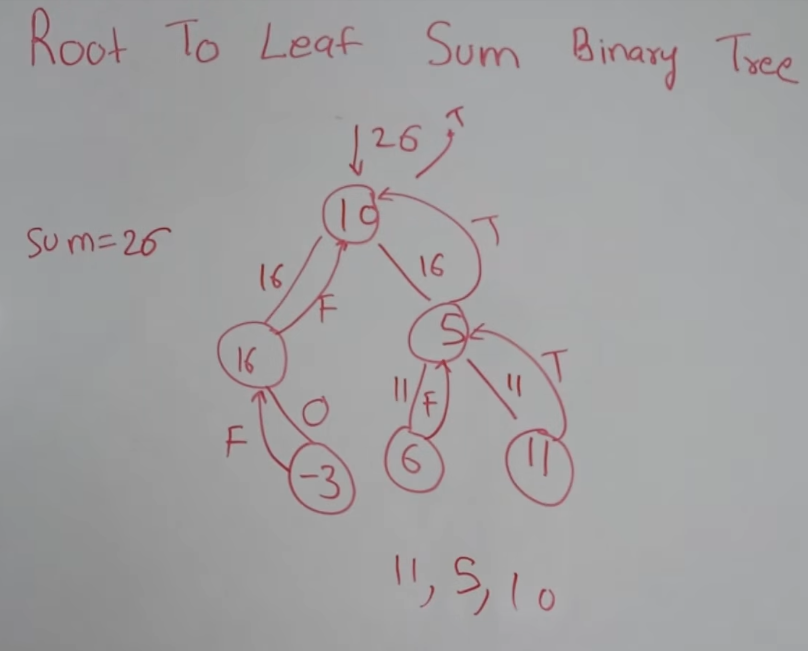 Root To Leaf Sum Binary Tree
26 T
10
sum=26
T
16 16
F
16 5
11 F 11 T
F 0
-3 6 11
11, 5, 10